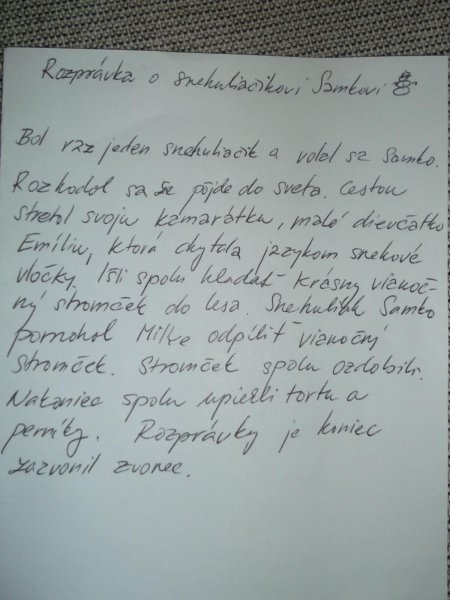 Rozprávka o snehuliačikovi Samkovi
Bol raz jeden snehuliačik a volal sa Samko.
Rozhodol sa že pôjde do sveta. Cestou
stretol svoju kamarátku, malé dievčatko
Emíliu, ktorá chytala jazykom snehové
vločky. Išli spolu hľadať krásny vianoč-
ný stromček do lesa. Snehuliak Samko
pomohol Milke odpíliť vianočný
stromček. Stromček spolu ozdobili.
Nakoniec spolu upiekli tortu a
perníky. Rozprávky je koniec
zazvonil zvonec.